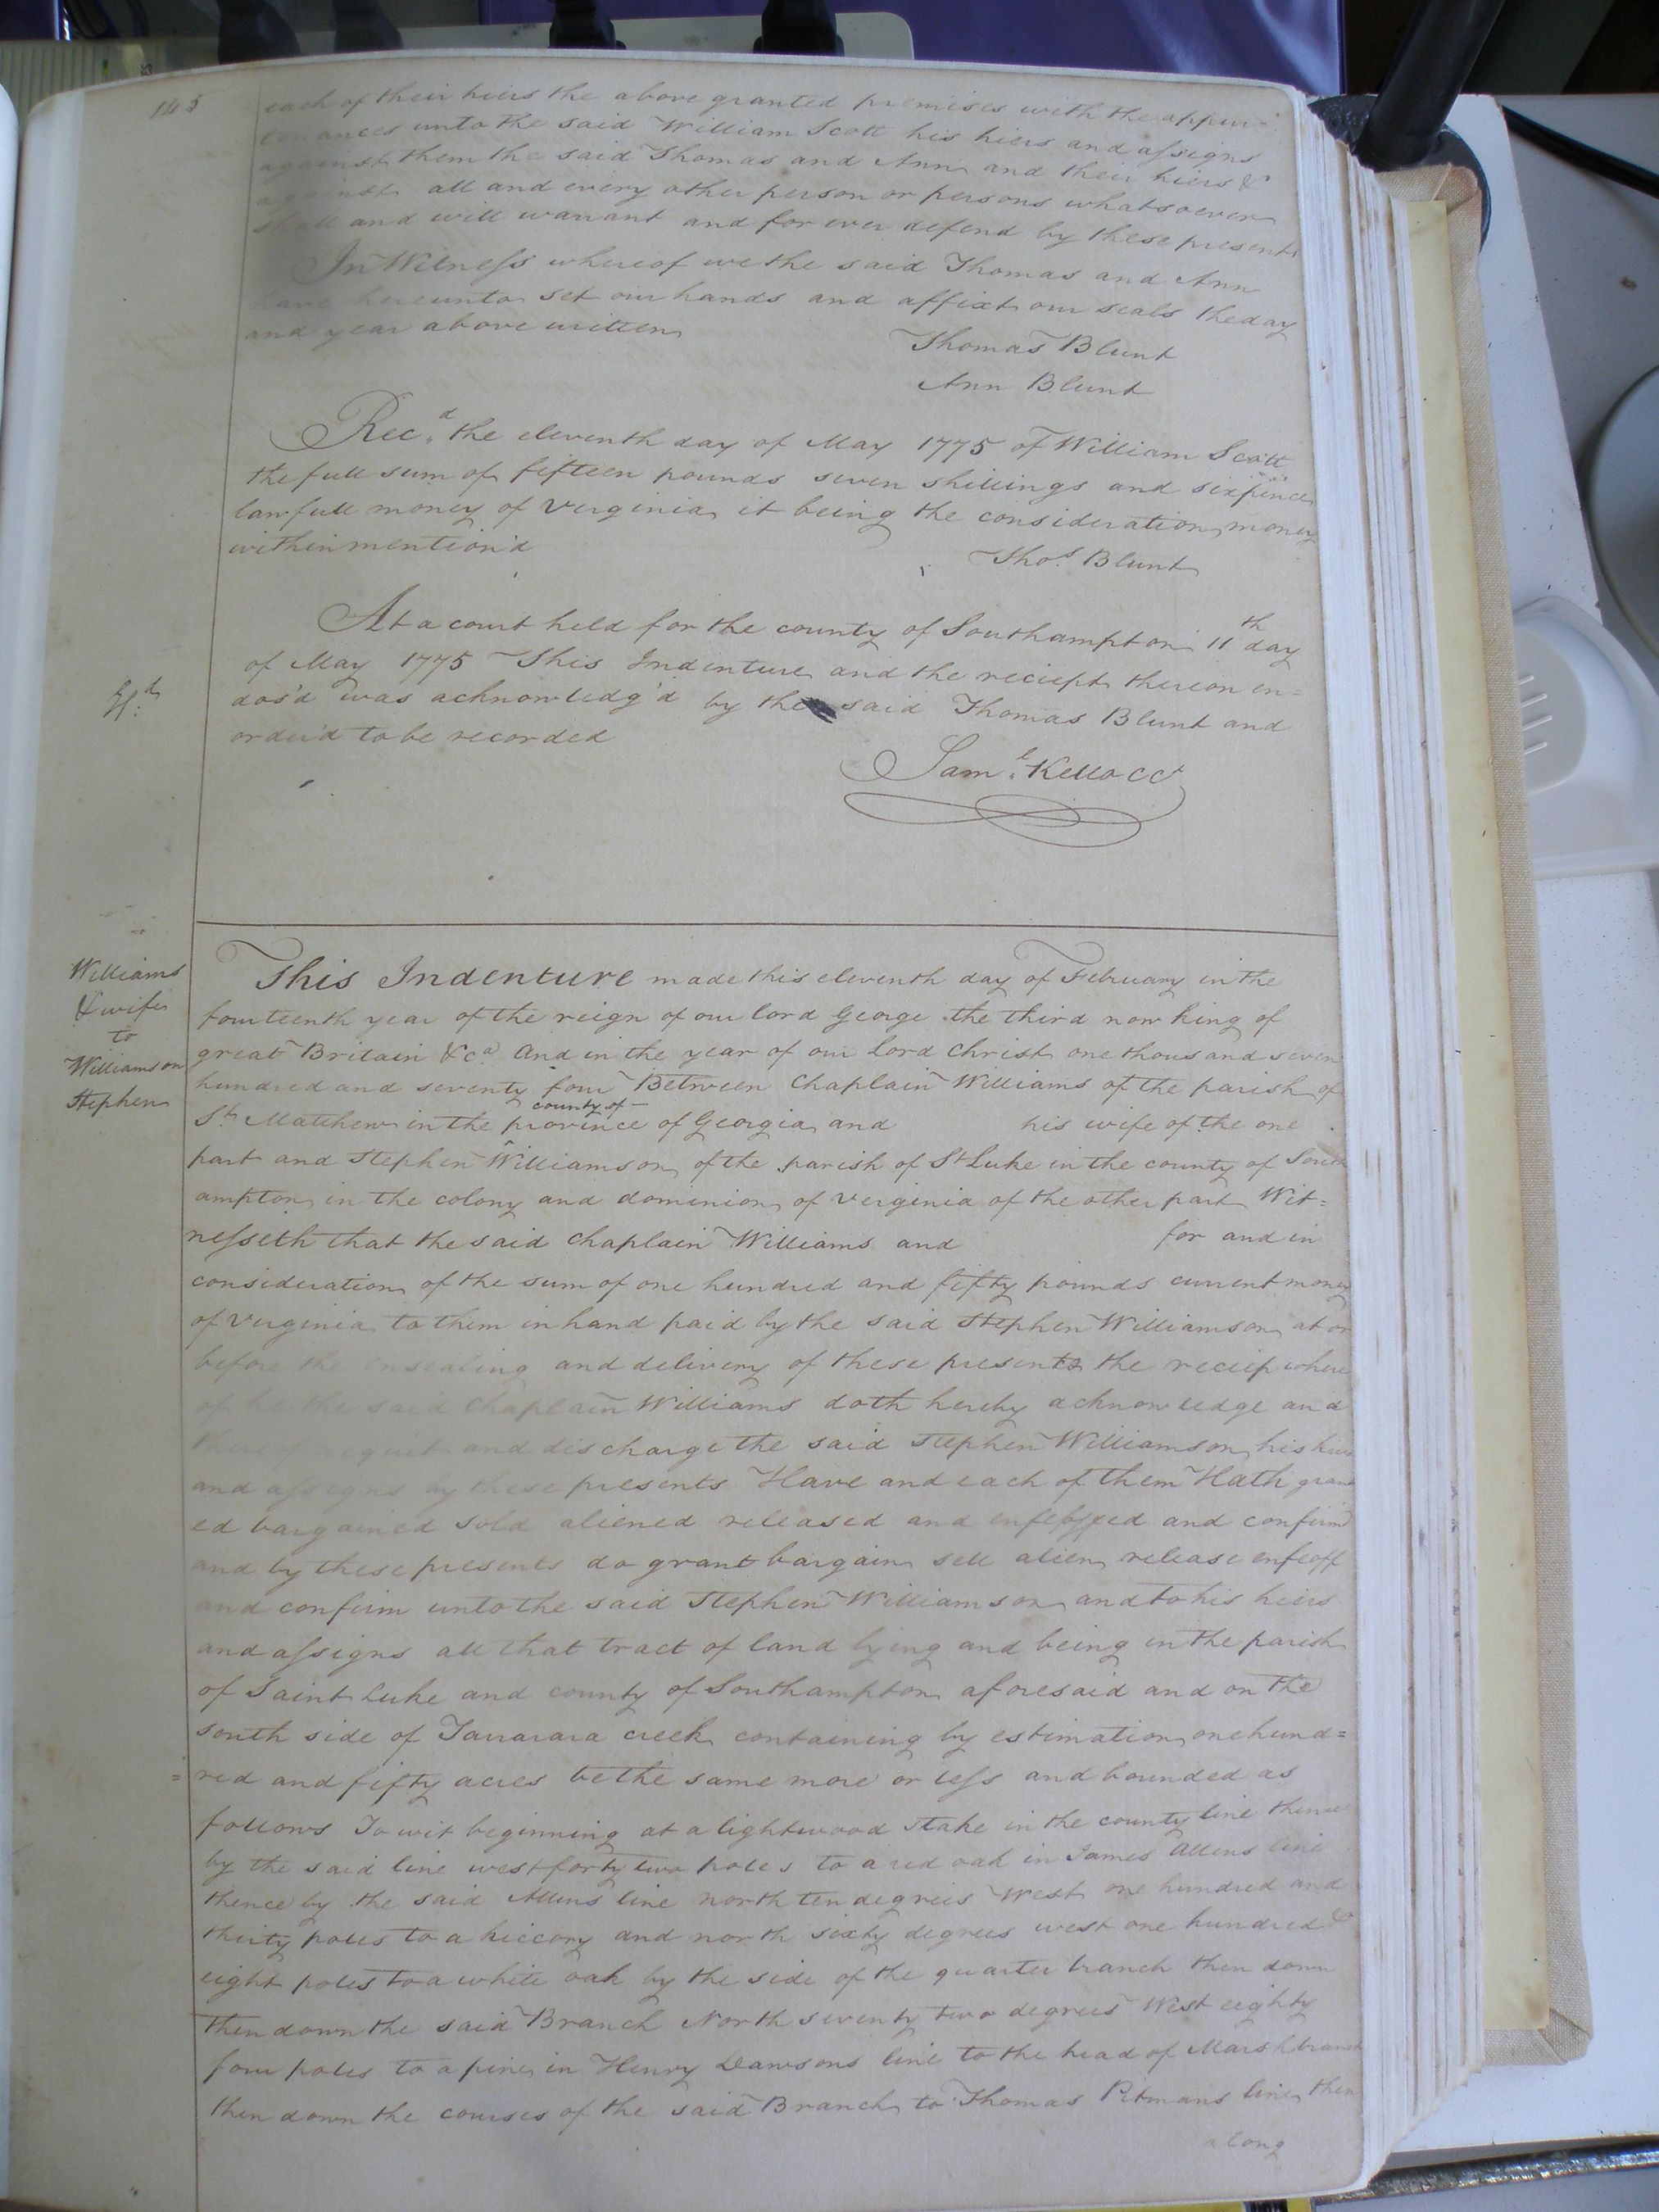 145
each of their hiers the above granted premises with the appur-
tenances unto the said William Scott his hiers and assigns
against them the said Thomas and Ann and their hiers &
against all and every other person or persons whatsoever
shall and will warrant and for ever defend by these presents
In Witness whereof we the said Thomas and Ann
have hereunto set our hands and affixt our seals the day
and year above written
Thomas Blunt
Ann Blunt
Rec.d the eleventh day of May 1775 of William Scott
the full sum of fifteen pounds seven shillings and sixpence
lawfull money of Virginia it being the consideration money
within mention'd
Thos. Blunt
At a court held for the county of Southampton 11th day
of May 1775 This Indenture and the reciept thereon en=
dos'd was acknowledg'd by the said Thomas Blunt and
order'd to be recorded
Sam.l Kello CC
Williams
& wife
to
Williamson
Stephen
This Indenture made this eleventh day of February in the
fourteenth year of the reign of our lord George the third now king of
great Britain &ca. And in the year of our Lord Christ one thousand seven
hundred and seventy four Between Chaplain Williams of the parish of
county of
St Matthew in the province of Georgia and his wife of the one
part and Stephen Williamson of the parish of St Luke in the county of South
ampton in the colony and dominion of Verginia of the other part Wit=
nesseth that the said Chaplain Williams and for and in
consideration of the sum of one hundred and fifty pounds current money
of Virginia to them in hand paid by the said Stephen Williamson at or
before the ensealing and delivery of these presents the reciep where
of he the said Chaplain Williams doth hereby acknowledge and
thereof acquit and discharge the said Stephen Williamson his hiers
and assigns by these presents Have and each of them Hath grant
ed bargained sold aliened released and enfeoffed and confirmd
and by these presents do grant bargain sell alien release enfeoff
and confirm unto the said Stephen Williamson and to his hiers
and assigns all that tract of land lying and being in the parish
of Saint Luke and county of Southampton aforesaid and on the
south side of Tarrarara creek containing by estimation one hund=
=red and fifty acres be the same more or less and bounded as
follows To wit beginning at a lightwood stake in the county line thence
by the said line west forty two poles to a red oak in James Allens line
thence by the said Allens line north ten degreis West one hundred and
thirty poles to a hiccory and north sixty degrees west one hundred &
eight poles to a white oak by the side of the quarter branch then down
then down the said Branch North seventy two degrees West eighty
four poles to a pine in Henry Dawsons line to the head of Marsh branch
then down the courses of the said Branch to Thomas Pitmans line then
along